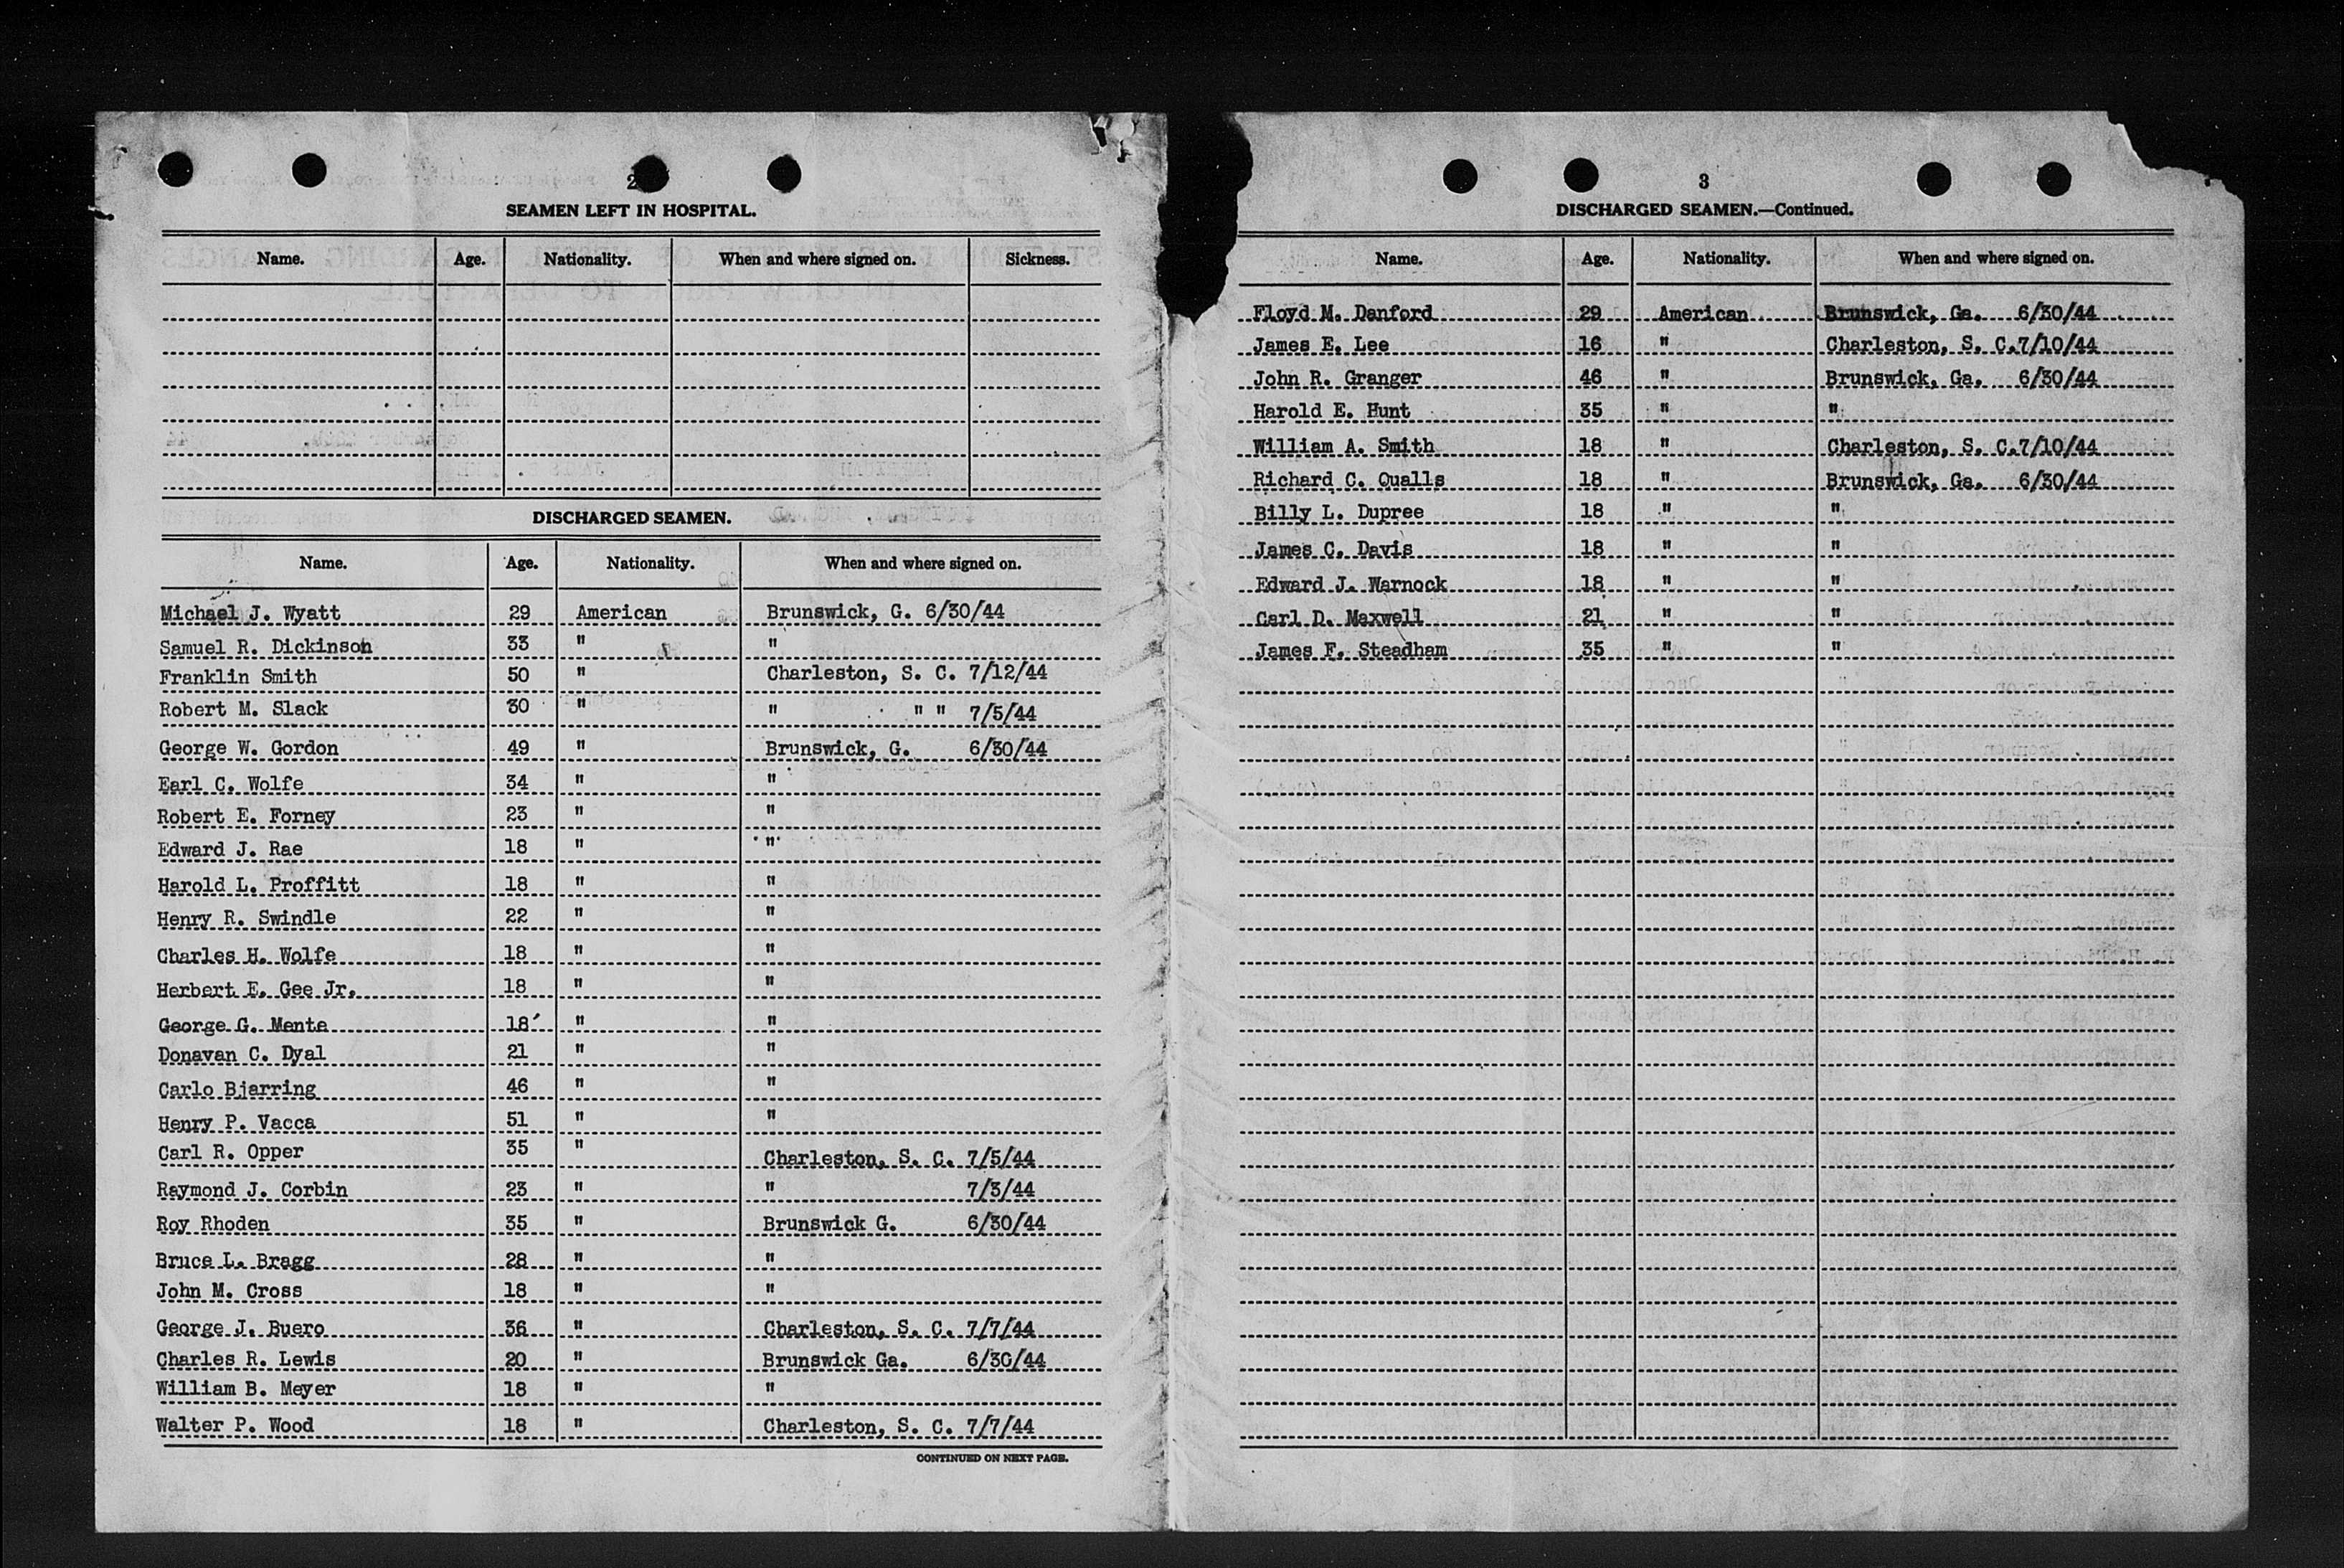 2
SEAMEN LEFT IN HOSPITAL.
Name. Age. Nationality. When and where signed on. Sickness.
DISCHARGED SEAMEN.
Name. Age. Nationality. When and where signed on.
Michael J. Wyatt 29 American Brunswick, G. 6/30/44
Samuel R. Dickinson 33 " "
Franklin Smith 50 " Charleston, S. C. 7/12/44
Robert M. Slack 30 " " " " 7/5/44
George W. Gordon 49 " Brunswick, G. 6/30/44
Earl C. Wolfe 34 " "
Robert E. Forney 23 " "
Edward J. Rae 18 " "
Harold L. Proffitt 18 " "
Henry R. Swindle 22 " "
Charles H. Wolfe 18 " "
Herbert E. Gee Jr. 18 " "
George G. Mente 18 " "
Donavan C. Dyal 21 " "
Carlo Bjarring 46 " "
Henry P. Vacca 51 " "
Carl R. Opper 35 " Charleston, S. C. 7/5/44
Raymond J. Corbin 23 " " 7/3/44
Roy Rhoden 35 " Brunswick G. 6/30/44
Bruce L. Bragg 28 " "
John M. Cross 18 " "
George J. Buero 36 " Charleston, S. C. 7/7/44
Charles R. Lewis 20 " Brunswick Ga. 6/30/44
William B. Meyer 18 " "
Walter P. Wood 18 " Charleston, S. C. 7/7/44
CONTINUED ON NEXT PAGE.
3
DISCHARGED SEAMEN.—Continued.
Name. Age. Nationality. When and where signed on.
Floyd M. Danford 29 American Brunswick, Ga. 6/30/44
James E. Lee 16 " Charleston, S. C.7/10/44
John R. Granger 46 " Brunswick, Ga. 6/30/44
Harold E. Hunt 35 " "
William A. Smith 18 " Charleston, S. C.7/10/44
Richard C. Qualls 18 " Brunswick, Ga. 6/30/44
Billy L. Dupree 18 " "
James C. Davis 18 " "
Edward J. Warnock 18 " "
Carl D. Maxwell 21 " "
James F. Steadham 35 " "